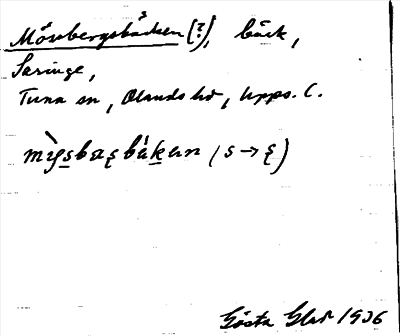 Mösebergsbäcken [?], bäck,
Saringe,
Tuna sn, Olands hd, Upps. C.
(s → ʂ)
Gösta Glad 1936